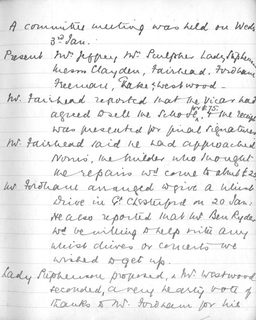 A committee meeting was held on Weds
3rd Jan.
Present Mr Jeffrey Mr Pulpher Lady Stephenson
Messrs Clayden, Fairhead, Fordham
Freeman, Drake, Westwood.
Mr. Fairhead reported that the Vicar had
for £75
agreed to sell the School, & the receipt
was presented for final signatures
Mr. Fairhead said he had approached
Norris, the builder who thought
the repairs wd come to about £25
Mr Fordham arranged to give a Whist
Drive in Gt Chesterford on 20 Jan:
He also reported that Mr Ben Ryder
wd be willing to help with any
whist drives or concerts we
wished to get up.
Lady Stephenson proposed, & Mr Westwood
seconded, a very hearty vote of
thanks to Mr. Fordham for his